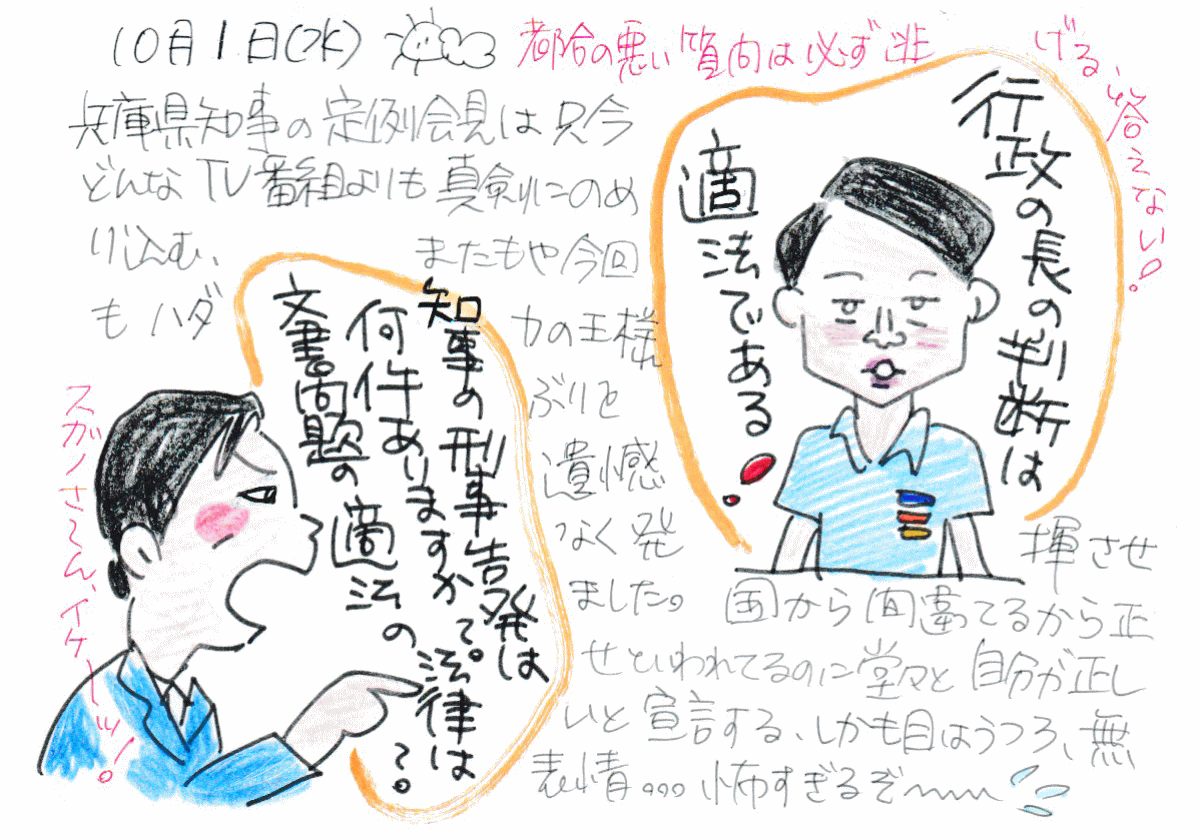 10月1日(水)
都合の悪い質問は必ず逃げる、答えない!
兵庫県知事の定例会見は只今
どんなTV番組よりも真剣にのめ
り込む、またもや今回
もハダカの王様
ぶりを
遺憾
なく発揮させ
ました。国から間違ってるから正
せといわれてるのに堂々と自分が正し
いと宣言する、しかも目はうつろ、無
表情。。。怖すぎるぞ〜
行政の長の判断は
適法である!
知事の刑事告発は
何件ありますかて。
文書問題の適法の法律は?。
スガノさ〜ん、イケーッ!。